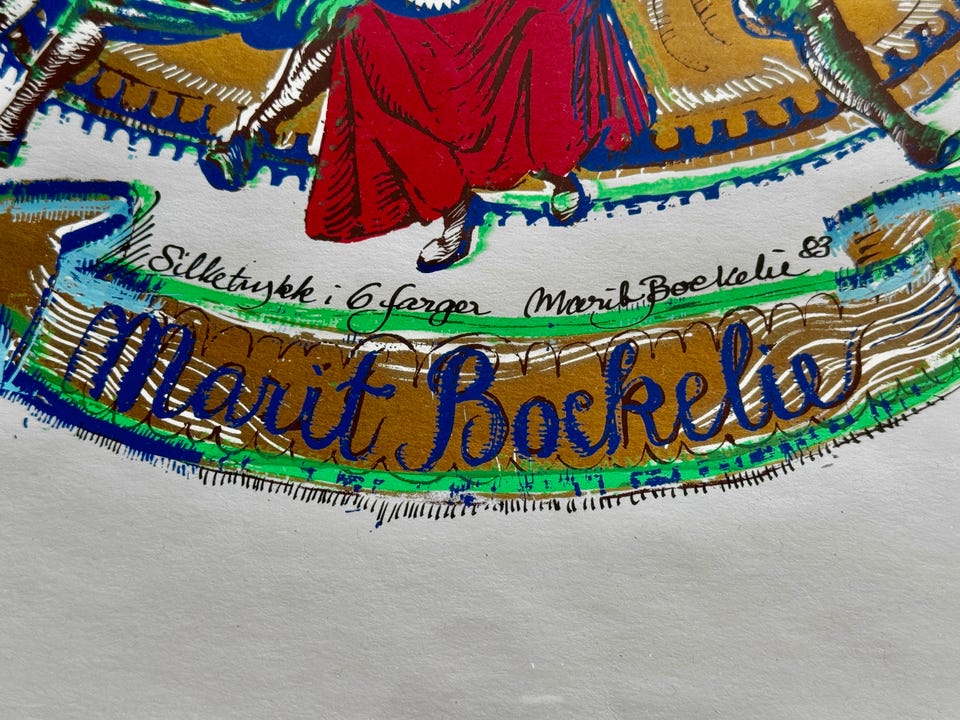 Silketrykk i 6 farger Marit Bockelie 83
Marit Bockelie